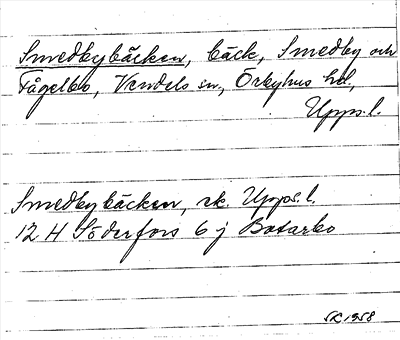 Smedbybäcken, bäck, Smedby och
Fågelbo, Vendels sn, Örbyhus hd,
Upps. l.
Smedbybäcken, rk. Upps. l.
12 H Söderfors 6 j Botarbo
SK 1958